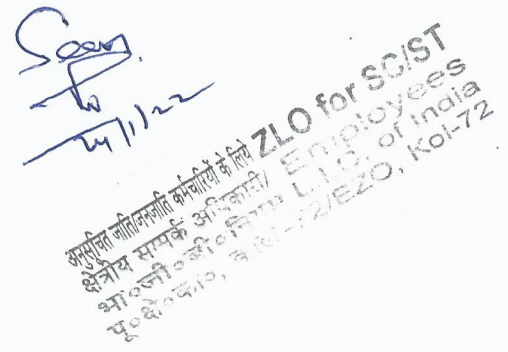 Seen
24/1/22
अनुसूचित जाति/जनजाति कर्मचारियों के लिये ZLO for SC/ST
क्षेत्रीय सम्पर्क अधिकारी/ Employees
भा०जी०बी०निगम L.I.C. of India
पू०क्षे०का०, कोल-72/EZO, Kol-72